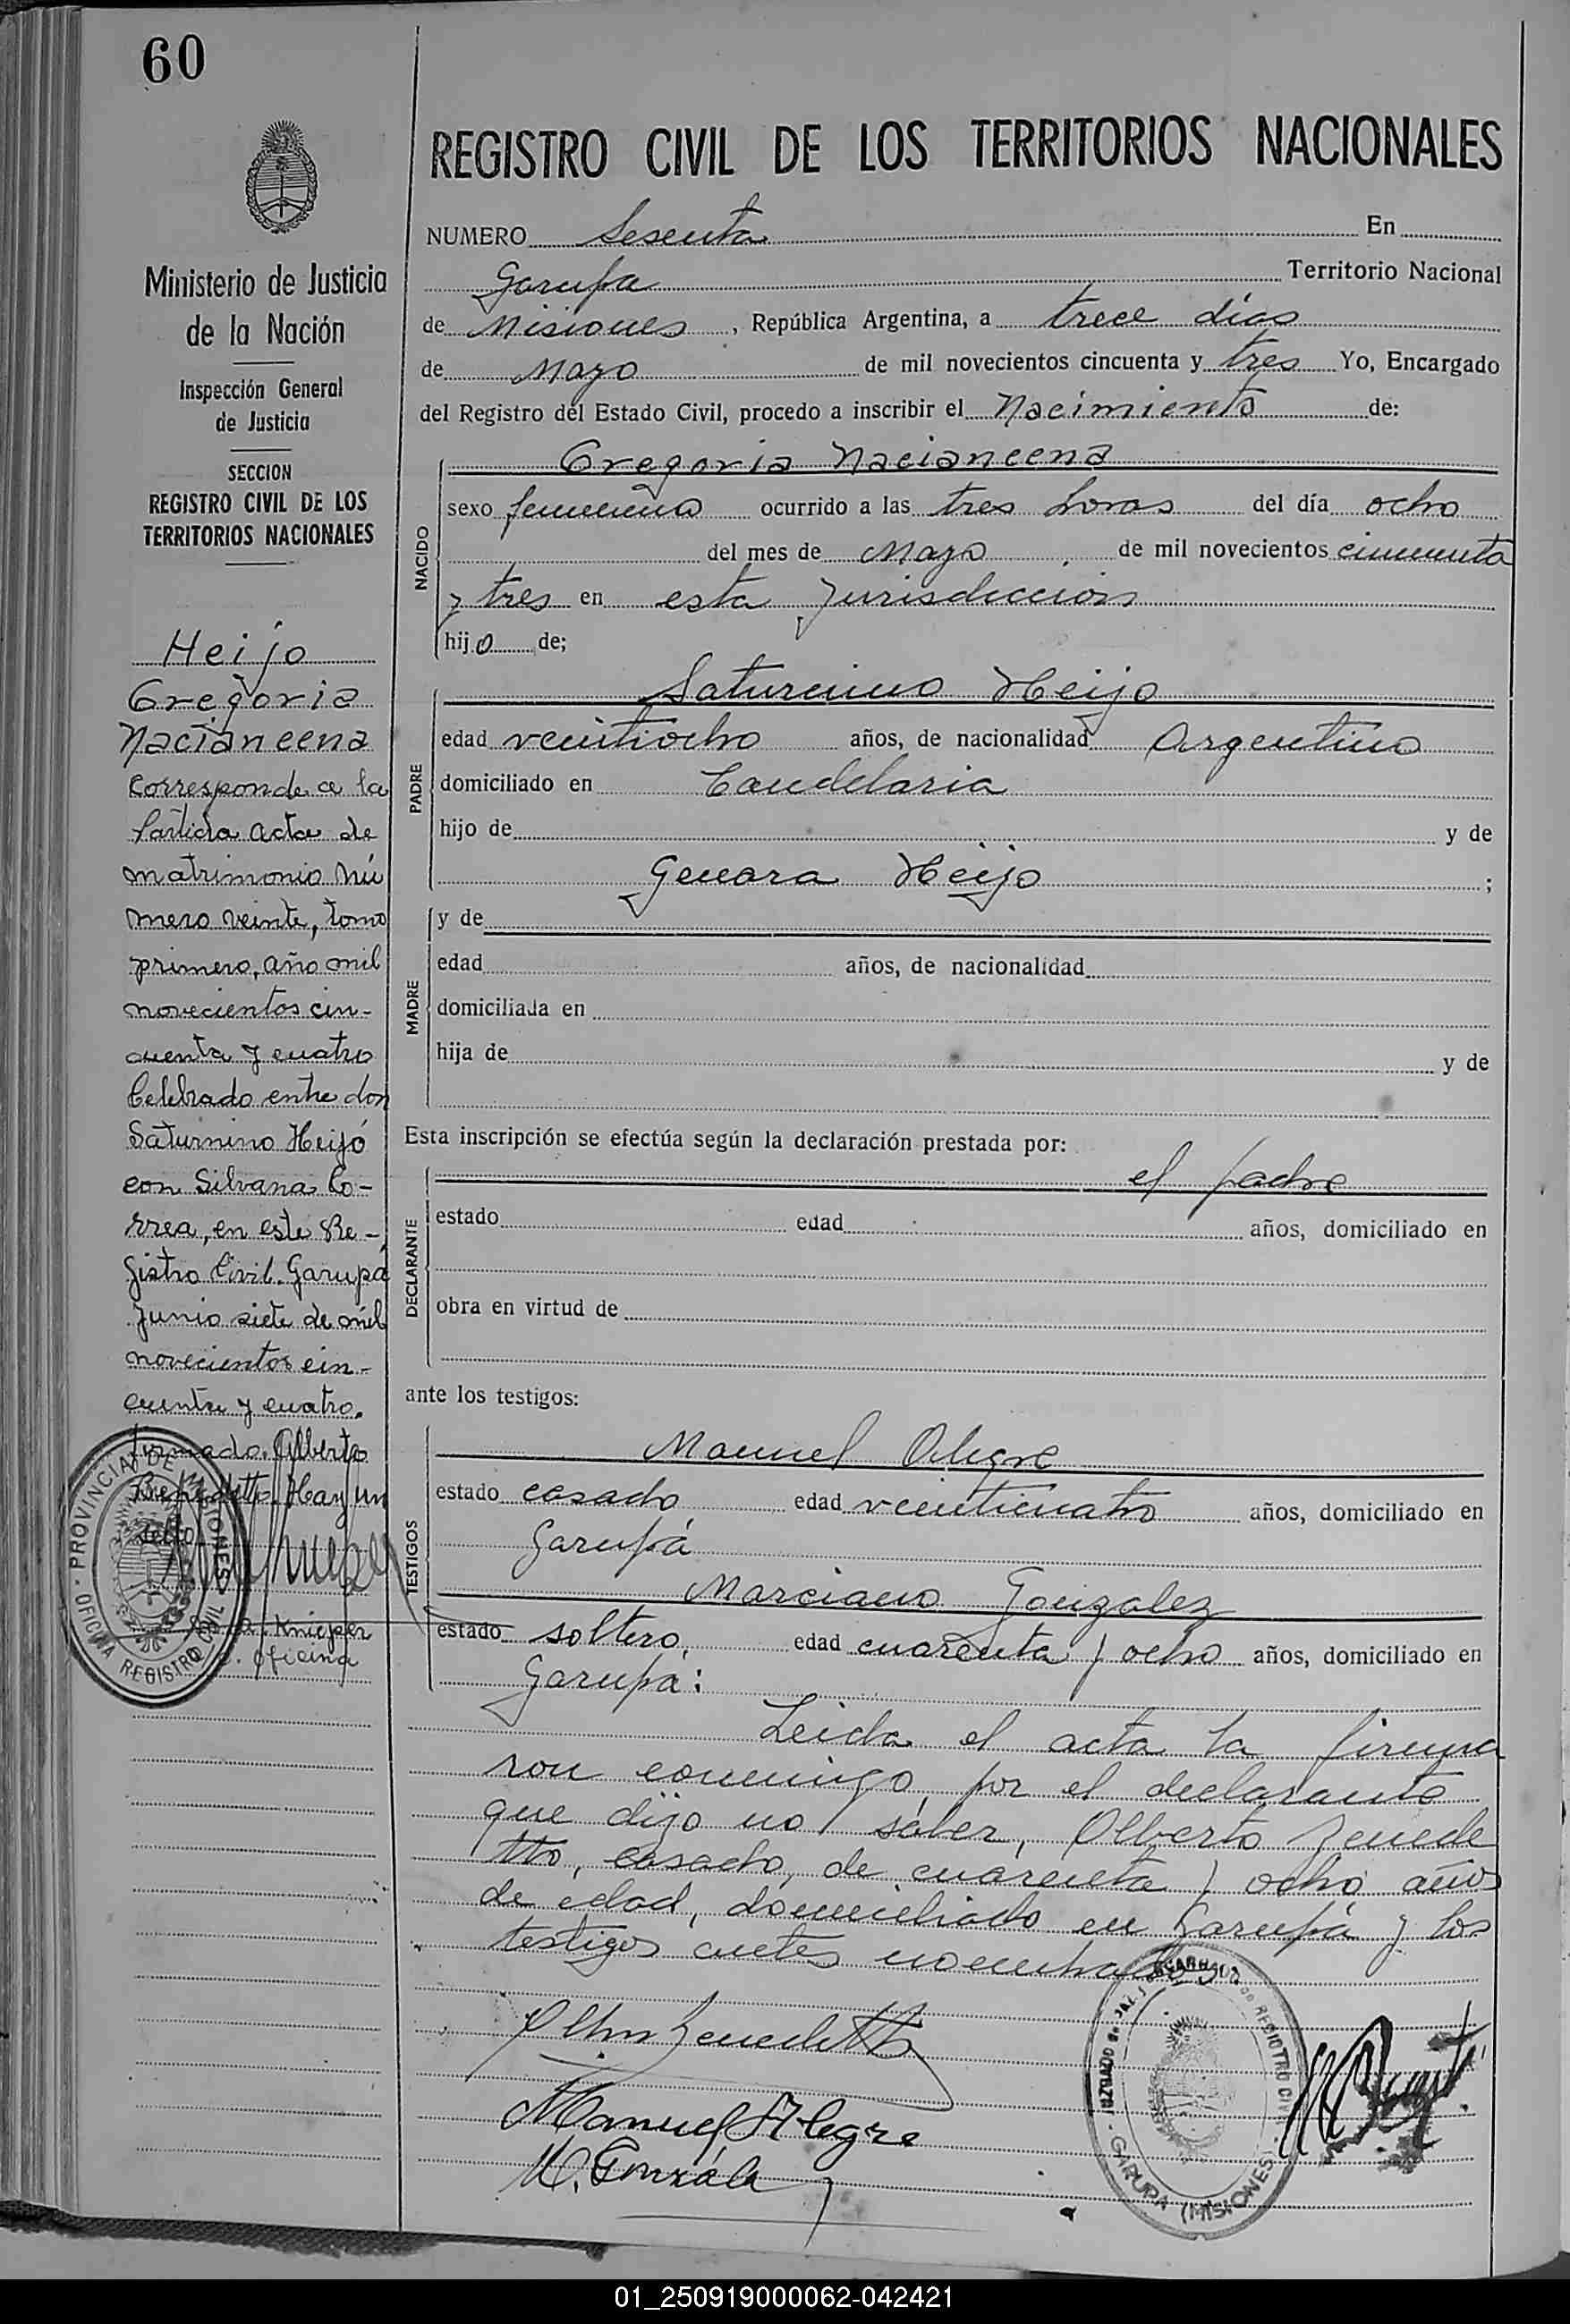 60
REGISTRO CIVIL DE LOS TERRITORIOS NACIONALES
Ministerio de Justicia
de la Nación
Inspección General
de Justicia
SECCION
REGISTRO CIVIL DE LOS
TERRITORIOS NACIONALES
Heijo
Gregoria
Nacianeena
corresponde a la
partida acta de
matrimonio nú
mero veinte, tomo
primero, año mil
novecientos cin-
cuenta y cuatro
Celebrado entre don
Saturnino Heijó
con Silvana Co-
rrea, en este Re-
gistro Civil. Garupá
Junio siete de mil
novecientos cin-
cuenta y cuatro.
firmado. Alberto
Benedetto. Hay un
sello
A. Knieper
Oficina
PROVINCIA DE MISIONES
OFICINA REGISTRO CIVIL
NUMERO Sesenta En
Garupa Territorio Nacional
de Misiones, República Argentina, a trece dias
de Mayo de mil novecientos cincuenta y tres Yo, Encargado
del Registro del Estado Civil, procedo a inscribir el Nacimiento de:
NACIDO
Gregoria Nacianeena
sexo femenino ocurrido a las tres horas del día ocho
del mes de Mayo de mil novecientos cincuenta
y tres en esta Jurisdiccion
hijo de;
PADRE
Saturnino Heijo
edad veintiocho años, de nacionalidad Argentino
domiciliado en Candelaria
hijo de y de
Genara Heijo ;
MADRE
y de
edad años, de nacionalidad
domiciliada en
hija de y de
Esta inscripción se efectúa según la declaración prestada por:
DECLARANTE
el padre
estado edad años, domiciliado en
obra en virtud de
ante los testigos:
TESTIGOS
Manuel Alegre
estado casado edad veinticuatro años, domiciliado en
Garupá
Marciano Gonzalez
estado soltero, edad cuarenta y ocho años, domiciliado en
Garupa:
Leida el acta la firma
ron conmigo, por el declarante
que dijo no saber, Alberto Benede
tto, casado, de cuarenta y ocho años
de edad, domiciliado en Garupá y los
testigos antes nombrados
Manuel Alegre
M. Gonzále
JUZGADO DE PAZ
REGISTRO CIVIL
GARUPA (MISIONES)
01_250919000062-042421